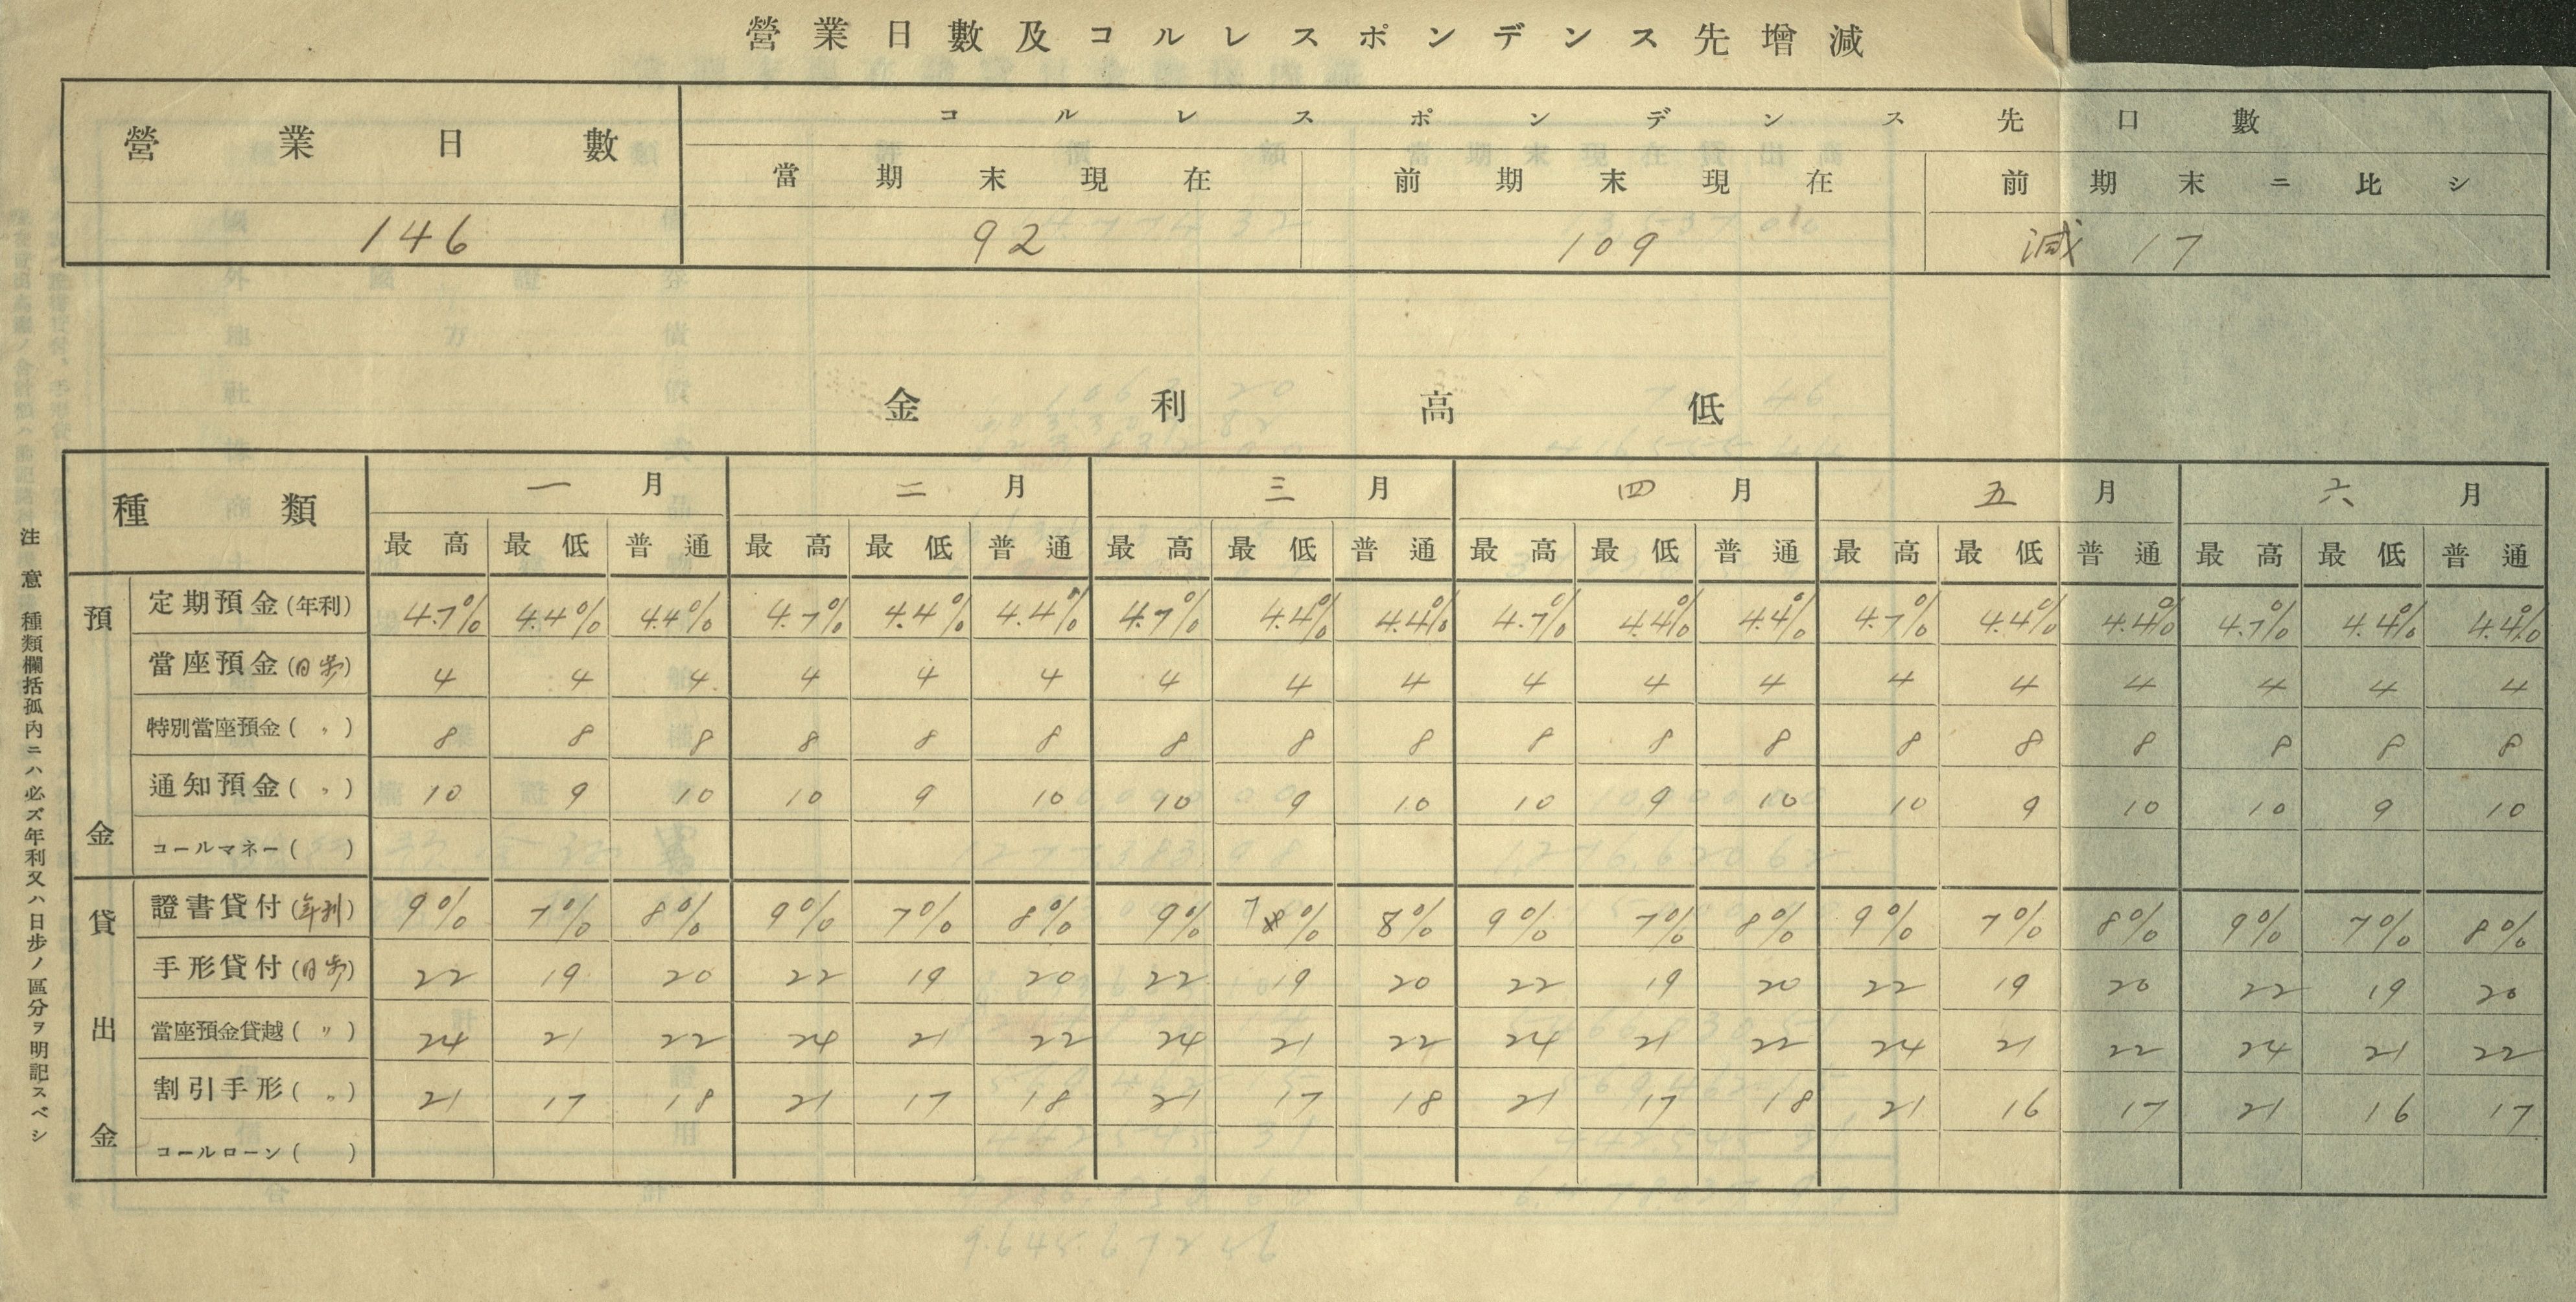 營業日數及コルレスポンデンス先增減
營業日數 コルレスポンデンス先口數
當期末現在 前期末現在 前期末ニ比シ
146 92 109 減 17
金利高低
種類 一月 二月 三月 四月 五月 六月
最高 最低 普通 最高 最低 普通 最高 最低 普通 最高 最低 普通 最高 最低 普通 最高 最低 普通
預金
定期預金(年利) 4.7% 4.4% 4.4% 4.7% 4.4% 4.4% 4.7% 4.4% 4.4% 4.7% 4.4% 4.4% 4.7% 4.4% 4.4% 4.7% 4.4% 4.4%
當座預金(日步) 4 4 4 4 4 4 4 4 4 4 4 4 4 4 4 4 4 4
特別當座預金(〃) 8 8 8 8 8 8 8 8 8 8 8 8 8 8 8 8 8 8
通知預金(〃) 10 9 10 10 9 10 10 9 10 10 9 10 10 9 10 10 9 10
コールマネー( )
貸出金
證書貸付(年利) 9% 7% 8% 9% 7% 8% 9% 7% 8% 9% 7% 8% 9% 7% 8% 9% 7% 8%
手形貸付(日步) 22 19 20 22 19 20 22 19 20 22 19 20 22 19 20 22 19 20
當座預金貸越(〃) 24 21 22 24 21 22 24 21 22 24 21 22 24 21 22 24 21 22
割引手形(〃) 21 17 18 21 17 18 21 17 18 21 17 18 21 16 17 21 16 17
コールローン( )
注意 種類欄括孤內ニハ必ズ年利又ハ日步ノ區分ヲ明記スベシ